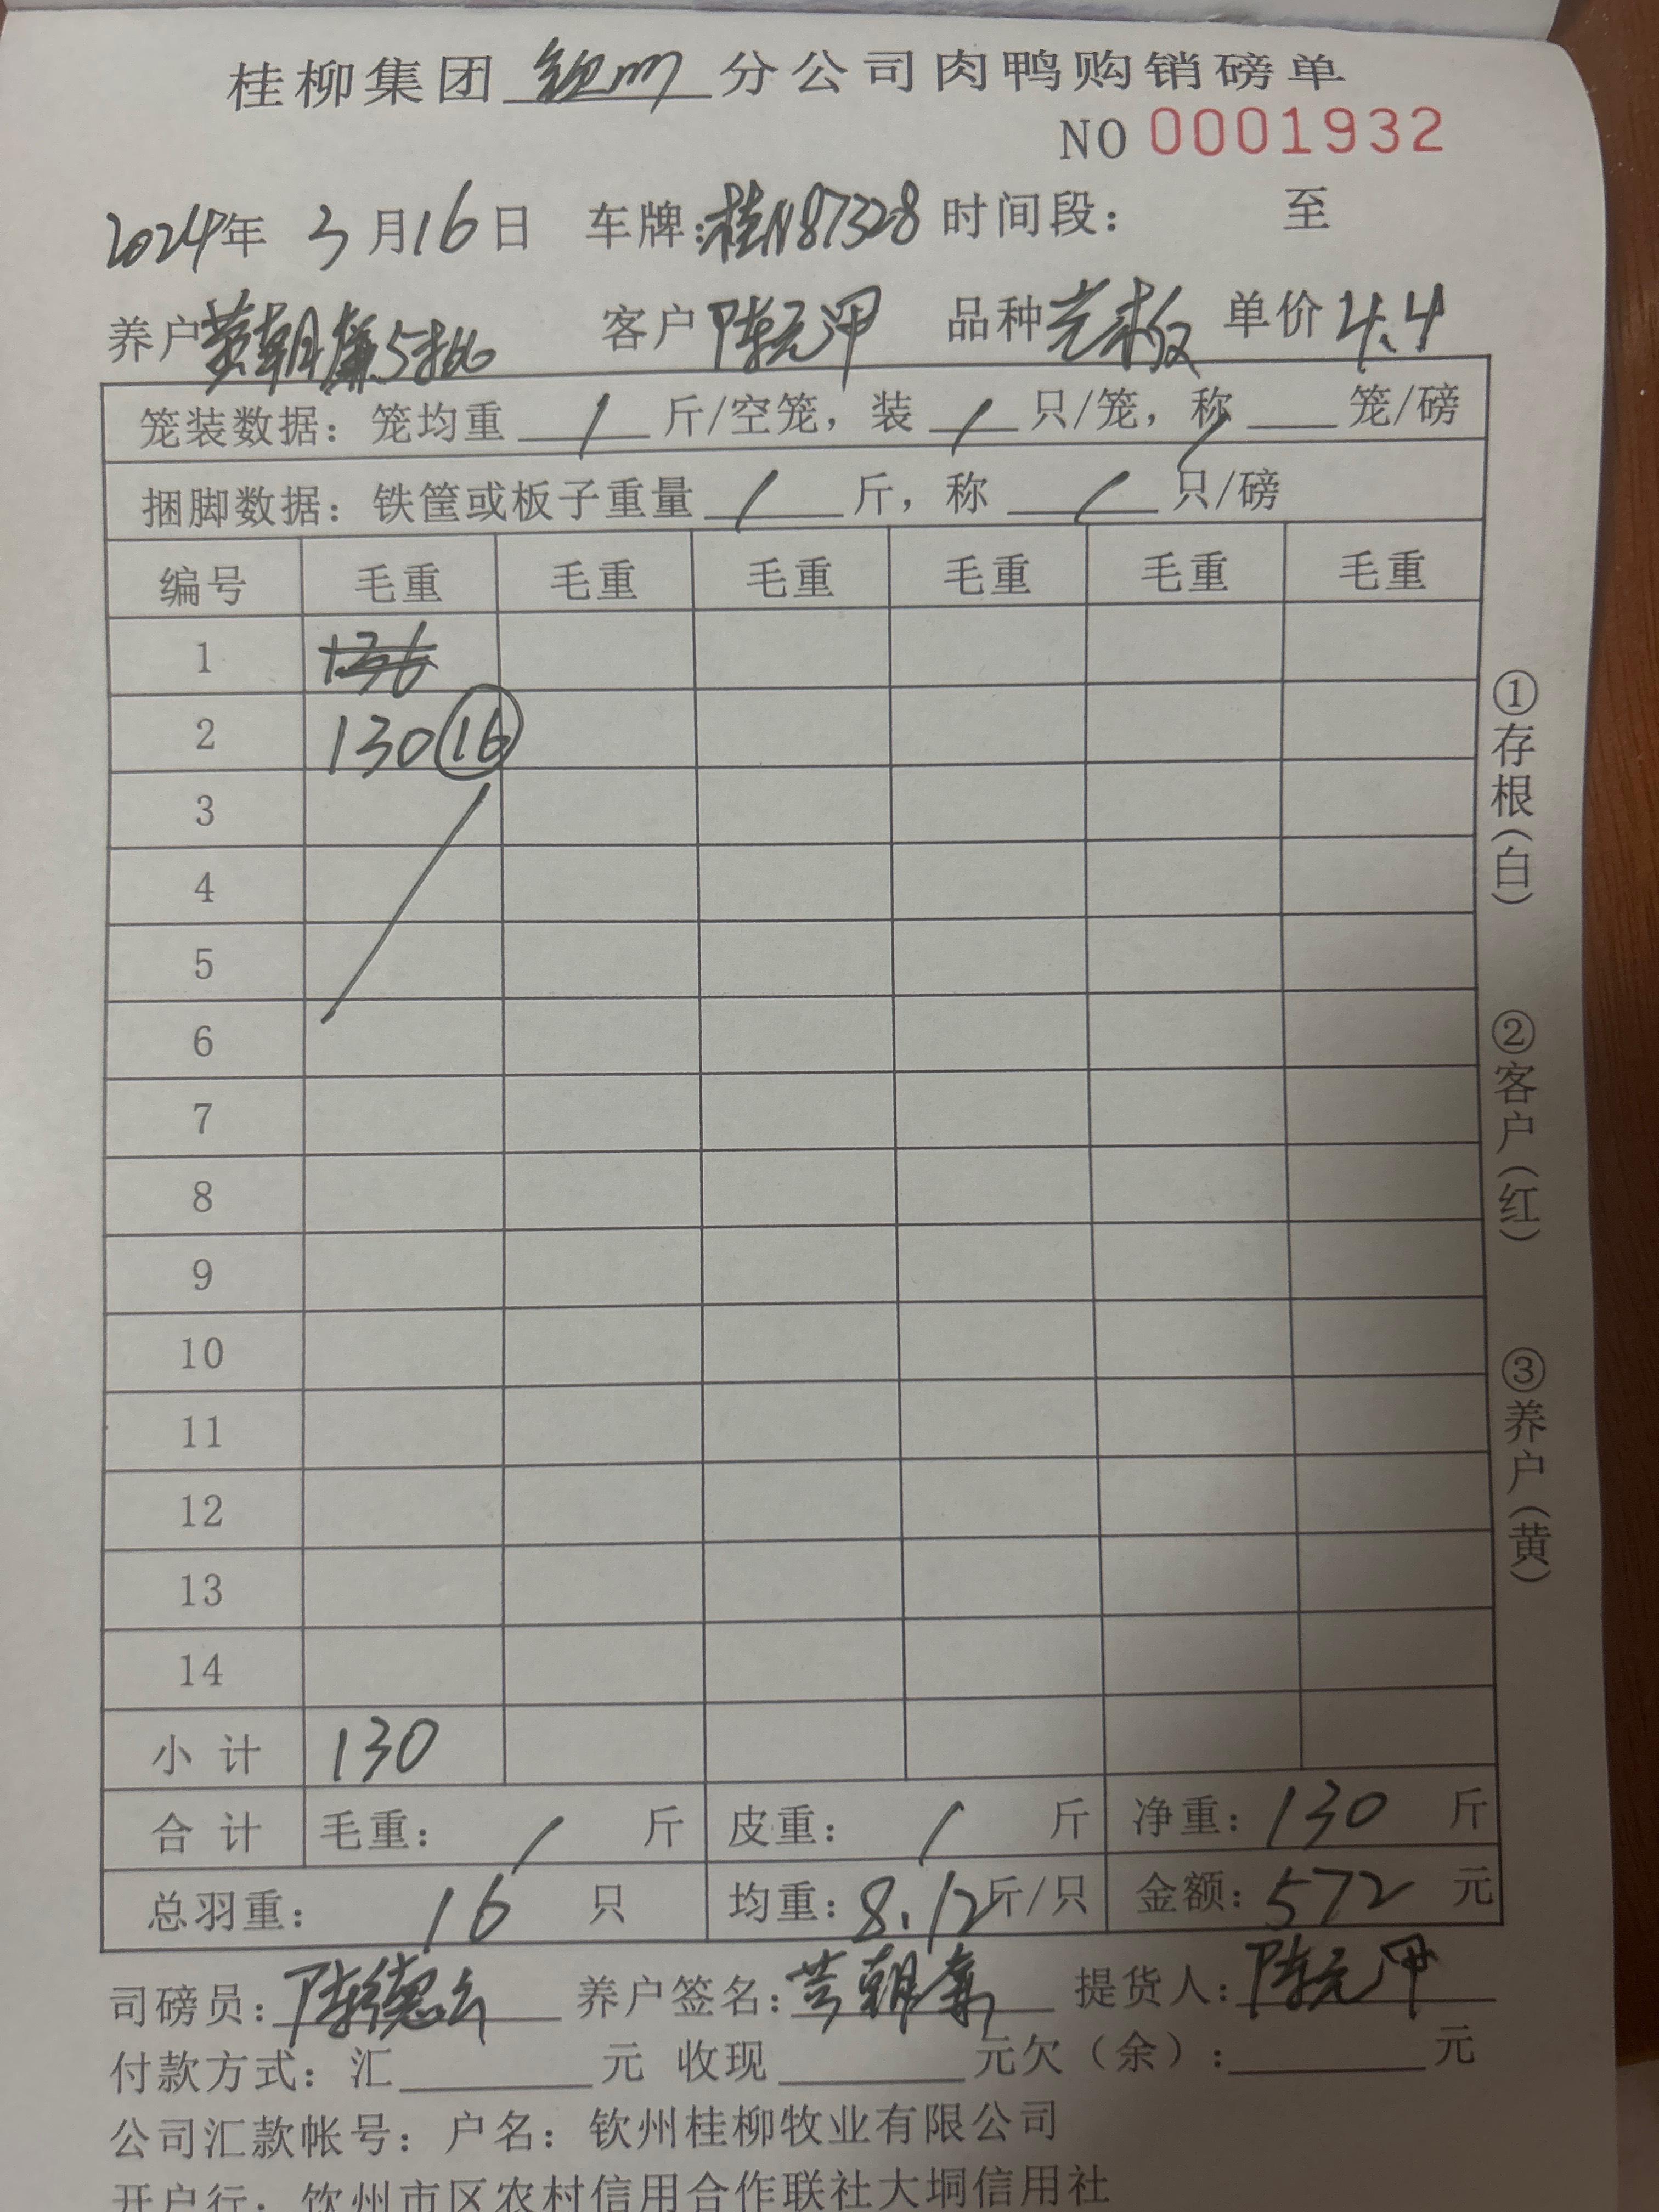 桂柳集团 钦州 分公司肉鸭购销磅单
NO 0001932
2024年 3月16日 车牌:桂N87328 时间段: 至
养户 黄朝廉5批 客户 陈元甲 品种 单价 4.4
笼装数据: 笼均重 / 斤/空笼, 装 / 只/笼, 称 / 笼/磅
捆脚数据: 铁筐或板子重量 / 斤, 称 / 只/磅
编号 毛重 毛重 毛重 毛重 毛重 毛重
1 136
2 130 16
3
4
5
6
7
8
9
10
11
12
13
14
小计 130
合计 毛重: / 斤 皮重: / 斤 净重: 130 斤
总羽重: 16 只 均重: 8.12斤/只 金额: 572 元
司磅员: 陈德云 养户签名: 黄朝廉 提货人: 陈元甲
付款方式: 汇 元 收现 元欠(余): 元
公司汇款帐号: 户名: 钦州桂柳牧业有限公司
开户行: 钦州市区农村信用合作联社大垌信用社
①存根(白) ②客户(红) ③养户(黄)